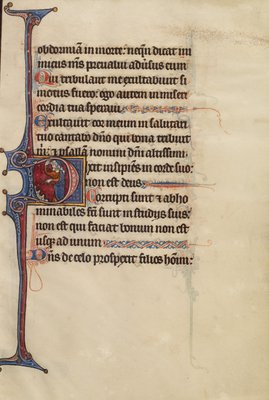 obdormiam in morte: nequan̄ dicat im
imicus m̄s preualui aduersus eum
Qui tribulant me exultabunt si
motus fuero: ego autem in miseri
cordia tua speraui
Exultauit cor meum in salutari
tuo cantabo dn̄o qui bona tribuit
m: 7 psallam nomini dn̄i altissimi
Dixit insipiens in corde suo
non est deus
Corrupti sunt 7 abho
minabiles fc̄i sunt in studijs suis
non est qui faciat bonum non est
usq; ad unum
Dn̄s de celo prospexit super filios hoīm: